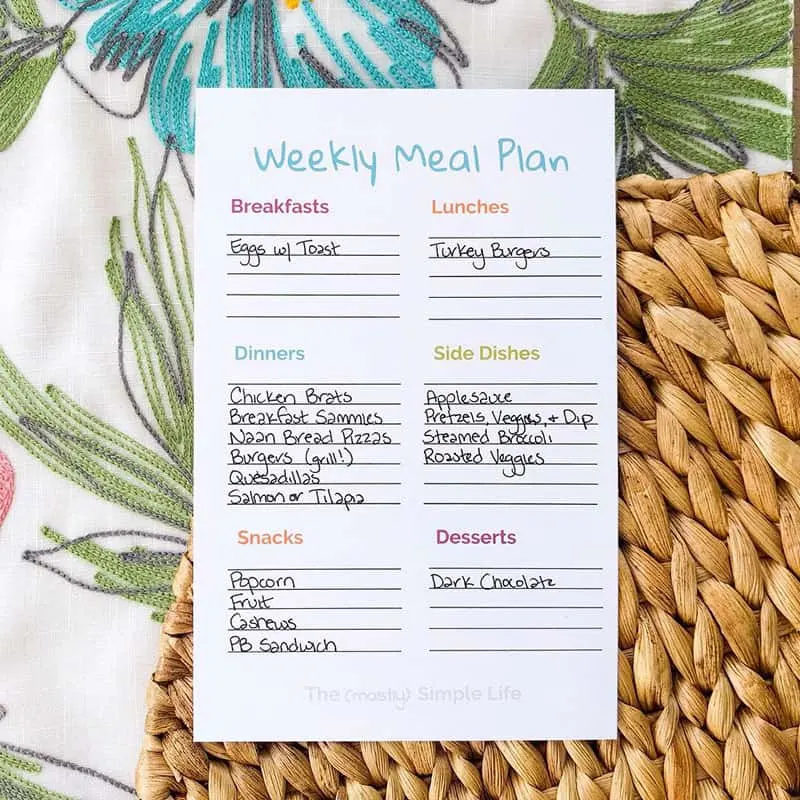 Weekly Meal Plan
Breakfasts
Eggs w/ Toast
Lunches
Turkey Burgers
Dinners
Chicken Brats
Breakfast Sammies
Naan Bread Pizzas
Burgers (grill!)
Quesadillas
Salmon or Tilapia
Side Dishes
Applesauce
Pretzels, Veggies, + Dip
Steamed Broccoli
Roasted Veggies
Snacks
Popcorn
Fruit
Cashews
PB Sandwich
Desserts
Dark Chocolate
The (mostly) Simple Life